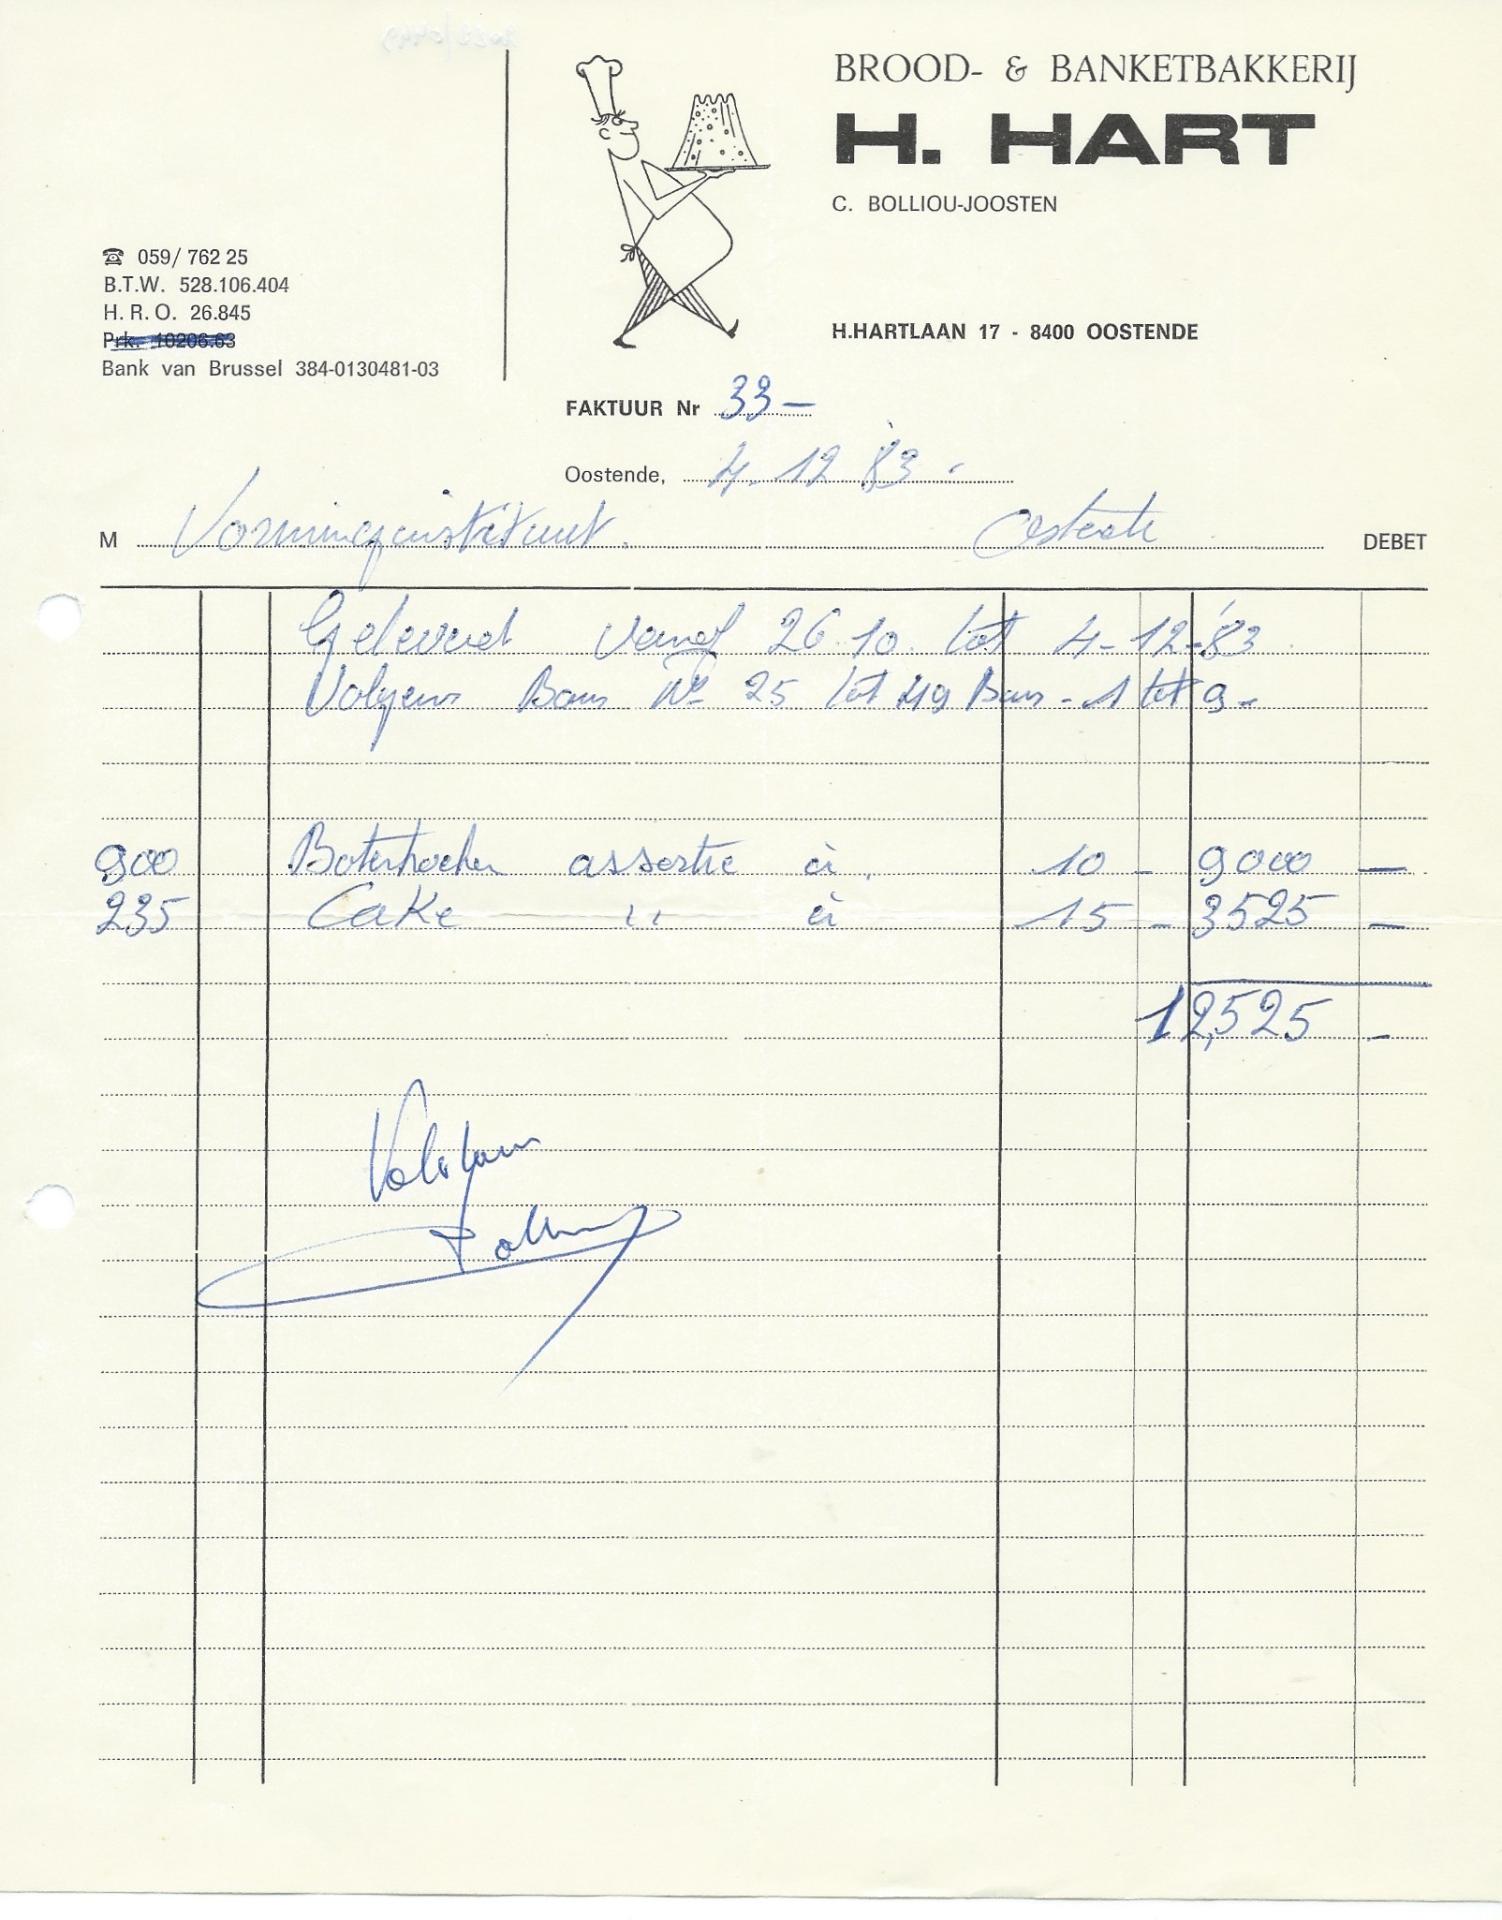 BROOD- & BANKETBAKKERIJ
H. HART
C. BOLLIOU-JOOSTEN
☎ 059/ 762 25
B.T.W. 528.106.404
H. R. O. 26.845
Prk. 10206.63
Bank van Brussel 384-0130481-03
H.HARTLAAN 17 - 8400 OOSTENDE
FAKTUUR Nr 33-
Oostende, 4.12 '83.
M Vormingsinstituut. DEBET
Geleverd vanaf 26.10. tot 4-12-'83.
Volgens Bons Nr 25 tot 49 Bons - 1 tot 9-
900 Boterkoeken assortie à. 10 - 9000 -
235 Cake " à 15 - 3525 -
12,525 -
Voldaan